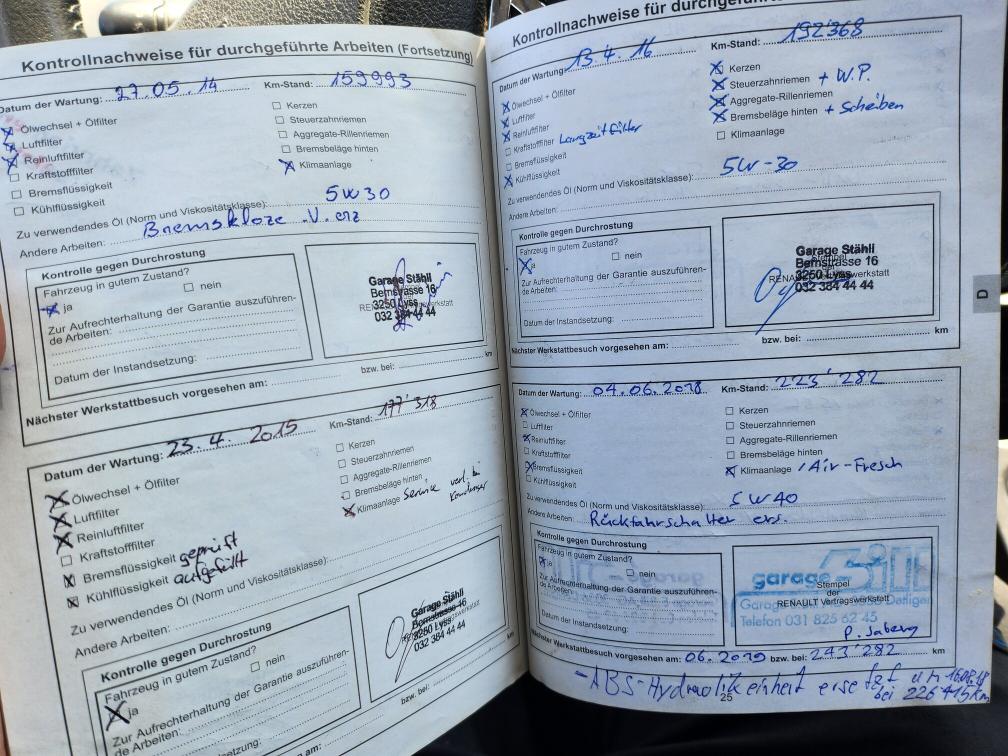 Kontrollnachweise für durchgeführte Arbeiten (Fortsetzung)
Datum der Wartung: 27.05.14 Km-Stand: 159993
Ölwechsel + Ölfilter
Luftfilter
Reinluftfilter
Kraftstofffilter
Bremsflüssigkeit
Kühlflüssigkeit
Kerzen
Steuerzahnriemen
Aggregate-Rillenriemen
Bremsbeläge hinten
Klimaanlage
Zu verwendetes Öl (Norm und Viskositätsklasse): 5W30
Andere Arbeiten: Bremsklöze .V. erz
Kontrolle gegen Durchrostung
Fahrzeug in gutem Zustand?
ja
nein
Zur Aufrechterhaltung der Garantie auszuführen-
de Arbeiten:
Datum der Instandsetzung:
Garage Stähli
Bernstrasse 16
3250 Lyss
032 384 44 44
Nächster Werkstattbesuch vorgesehen am: bzw. bei: km
Datum der Wartung: 23.4.2015 Km-Stand: 177'318
Ölwechsel + Ölfilter
Luftfilter
Reinluftfilter
Kraftstofffilter
Bremsflüssigkeit geprüft
Kühlflüssigkeit aufgefüllt
Kerzen
Steuerzahnriemen
Aggregate-Rillenriemen
Bremsbeläge hinten
Klimaanlage Service
Zu verwendetes Öl (Norm und Viskositätsklasse):
Andere Arbeiten:
Kontrolle gegen Durchrostung
Fahrzeug in gutem Zustand?
ja
nein
Zur Aufrechterhaltung der Garantie auszuführen-
de Arbeiten:
Garage Stähli
Bernstrasse 16
3250 Lyss
032 384 44 44
bzw. bei:
Kontrollnachweise für durchgeführte
Datum der Wartung: 13.4.16 Km-Stand: 192368
Ölwechsel + Ölfilter
Luftfilter
Reinluftfilter
Kraftstofffilter Langzeitfilter
Bremsflüssigkeit
Kühlflüssigkeit
Kerzen
Steuerzahnriemen + W.P.
Aggregate-Rillenriemen
Bremsbeläge hinten + Scheiben
Klimaanlage
Zu verwendetes Öl (Norm und Viskositätsklasse): 5W-30
Andere Arbeiten:
Kontrolle gegen Durchrostung
Fahrzeug in gutem Zustand?
ja
nein
Zur Aufrechterhaltung der Garantie auszuführen-
de Arbeiten:
Datum der Instandsetzung:
Garage Stähli
Bernstrasse 16
3250 Lyss
032 384 44 44
Nächster Werkstattbesuch vorgesehen am: bzw. bei: km
D
Datum der Wartung: 04.06.2018 Km-Stand: 223'282
Ölwechsel + Ölfilter
Luftfilter
Reinluftfilter
Kraftstofffilter
Bremsflüssigkeit
Kühlflüssigkeit
Kerzen
Steuerzahnriemen
Aggregate-Rillenriemen
Bremsbeläge hinten
Klimaanlage /Air-Fresh
Zu verwendetes Öl (Norm und Viskositätsklasse): 5W40
Andere Arbeiten: Rückfahrschalter ers.
Kontrolle gegen Durchrostung
Fahrzeug in gutem Zustand?
ja
nein
Zur Aufrechterhaltung der Garantie auszuführen-
de Arbeiten:
Datum der Instandsetzung:
garage
Stempel
der
RENAULT Vertragswerkstatt
Telefon 031 825 62 45
Nächster Werkstattbesuch vorgesehen am: 06.2019 bzw. bei: 243'282 km
-ABS-Hydraulikeinheit ersetzt am 16.08.18
bei 226415km
25